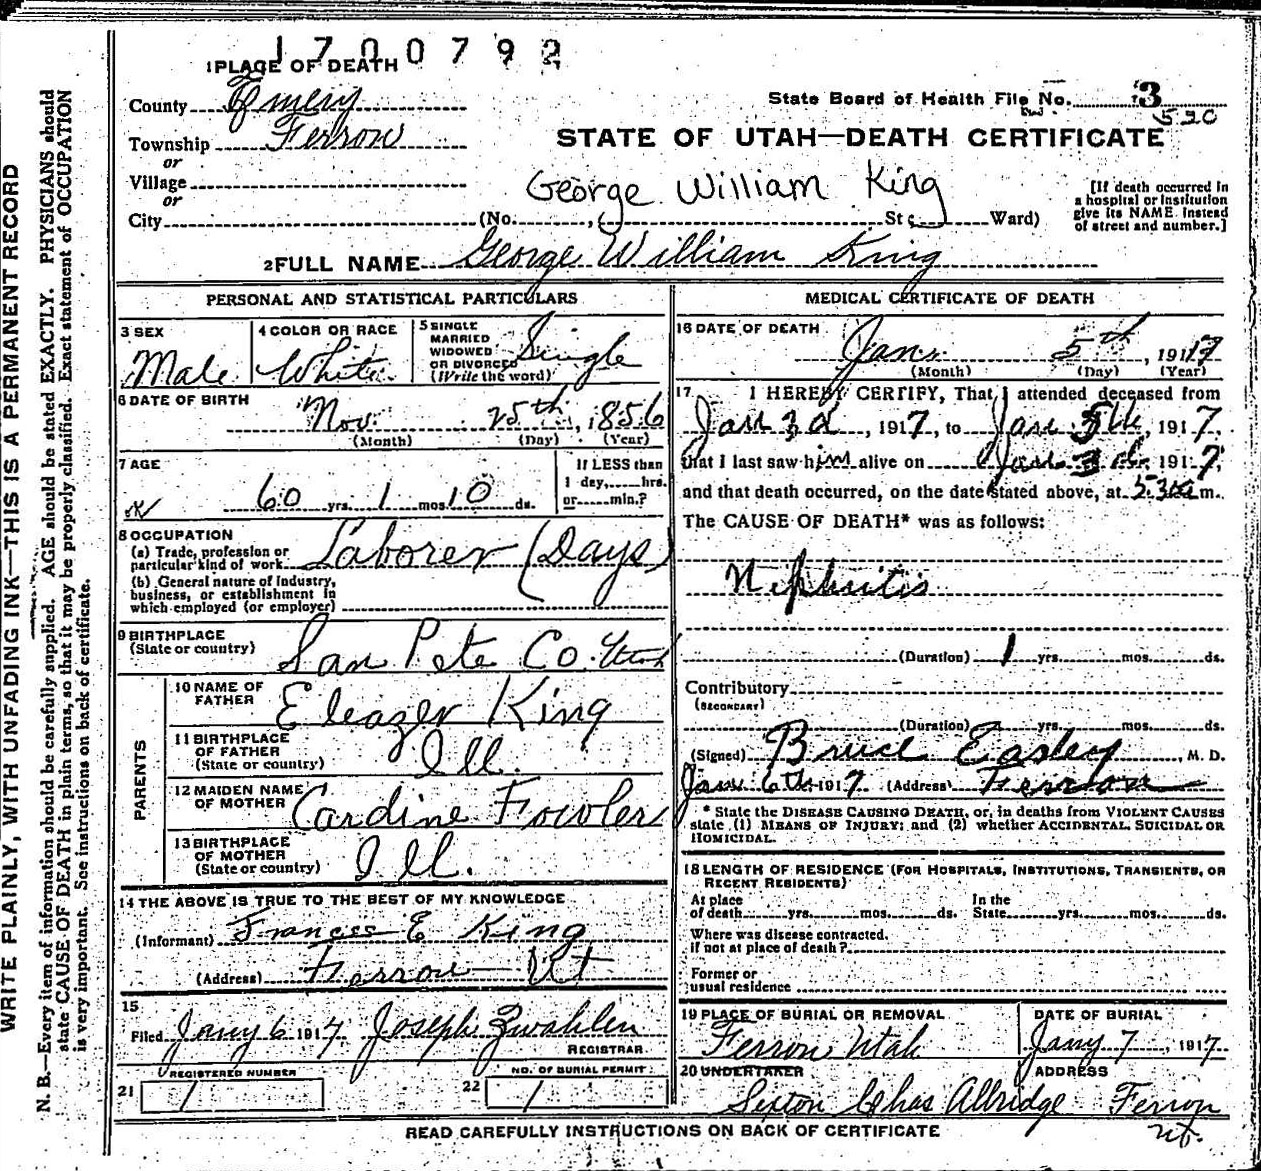 1700792
1 PLACE OF DEATH
County Emery
State Board of Health File No. 3
520
Township Ferron
STATE OF UTAH—DEATH CERTIFICATE
or
Village
George William King
or
City (No. , St; Ward)
[If death occurred in
a hospital or institution
give its NAME instead
of street and number.]
2 FULL NAME George William King
PERSONAL AND STATISTICAL PARTICULARS
3 SEX
Male
4 COLOR OR RACE
White
5 SINGLE
MARRIED
WIDOWED
OR DIVORCED
(Write the word)
Single
6 DATE OF BIRTH
Nov. 25th, 1856
(Month) (Day) (Year)
7 AGE
60 yrs. 1 mos. 10 ds.
If LESS than
1 day, hrs.
or min.?
8 OCCUPATION
(a) Trade, profession or
particular kind of work Laborer (Days)
(b) General nature of Industry,
business, or establishment in
which employed (or employer)
9 BIRTHPLACE
(State or country) San Pete Co. Utah
PARENTS
10 NAME OF
FATHER
Eleazer King
11 BIRTHPLACE
OF FATHER
(State or country)
Ill.
12 MAIDEN NAME
OF MOTHER
Cardine Fowler
13 BIRTHPLACE
OF MOTHER
(State or country)
Ill.
14 THE ABOVE IS TRUE TO THE BEST OF MY KNOWLEDGE
(Informant) Frances E King
(Address) Ferron Ut
15
Filed Jany 6 1917 Joseph Zwahlen
REGISTRAR
REGISTERED NUMBER
21 1
NO. OF BURIAL PERMIT
22 1
MEDICAL CERTIFICATE OF DEATH
16 DATE OF DEATH
Jan. 5th, 1917
(Month) (Day) (Year)
17 I HEREBY CERTIFY, That I attended deceased from
Jan 3d, 1917, to Jan 5th, 1917,
that I last saw him alive on Jan 3d, 1917,
and that death occurred, on the date stated above, at m.
The CAUSE OF DEATH* was as follows:
Nephritis
(Duration) 1 yrs. mos. ds.
Contributory
(SECONDARY)
(Duration) yrs. mos. ds.
(Signed) Bruce Easley, M. D.
Jan 6th 1917 (Address) Ferron
* State the DISEASE CAUSING DEATH, or, in deaths from VIOLENT CAUSES
state (1) MEANS OF INJURY; and (2) whether ACCIDENTAL, SUICIDAL OR
HOMICIDAL.
18 LENGTH OF RESIDENCE (FOR HOSPITALS, INSTITUTIONS, TRANSIENTS, OR
RECENT RESIDENTS)
At place
of death yrs. mos. ds.
In the
State yrs. mos. ds.
Where was disease contracted,
if not at place of death?
Former or
usual residence
19 PLACE OF BURIAL OR REMOVAL
Ferron Utah
DATE OF BURIAL
Jany 7, 1917
20 UNDERTAKER
Sexton Chas Allridge
ADDRESS
Ferron
Ut.
READ CAREFULLY INSTRUCTIONS ON BACK OF CERTIFICATE
WRITE PLAINLY, WITH UNFADING INK—THIS IS A PERMANENT RECORD
N. B.—Every item of information should be carefully supplied. AGE should be stated EXACTLY. PHYSICIANS should
state CAUSE OF DEATH in plain terms, so that it may be properly classified. Exact statement of OCCUPATION
is very important. See instructions on back of certificate.